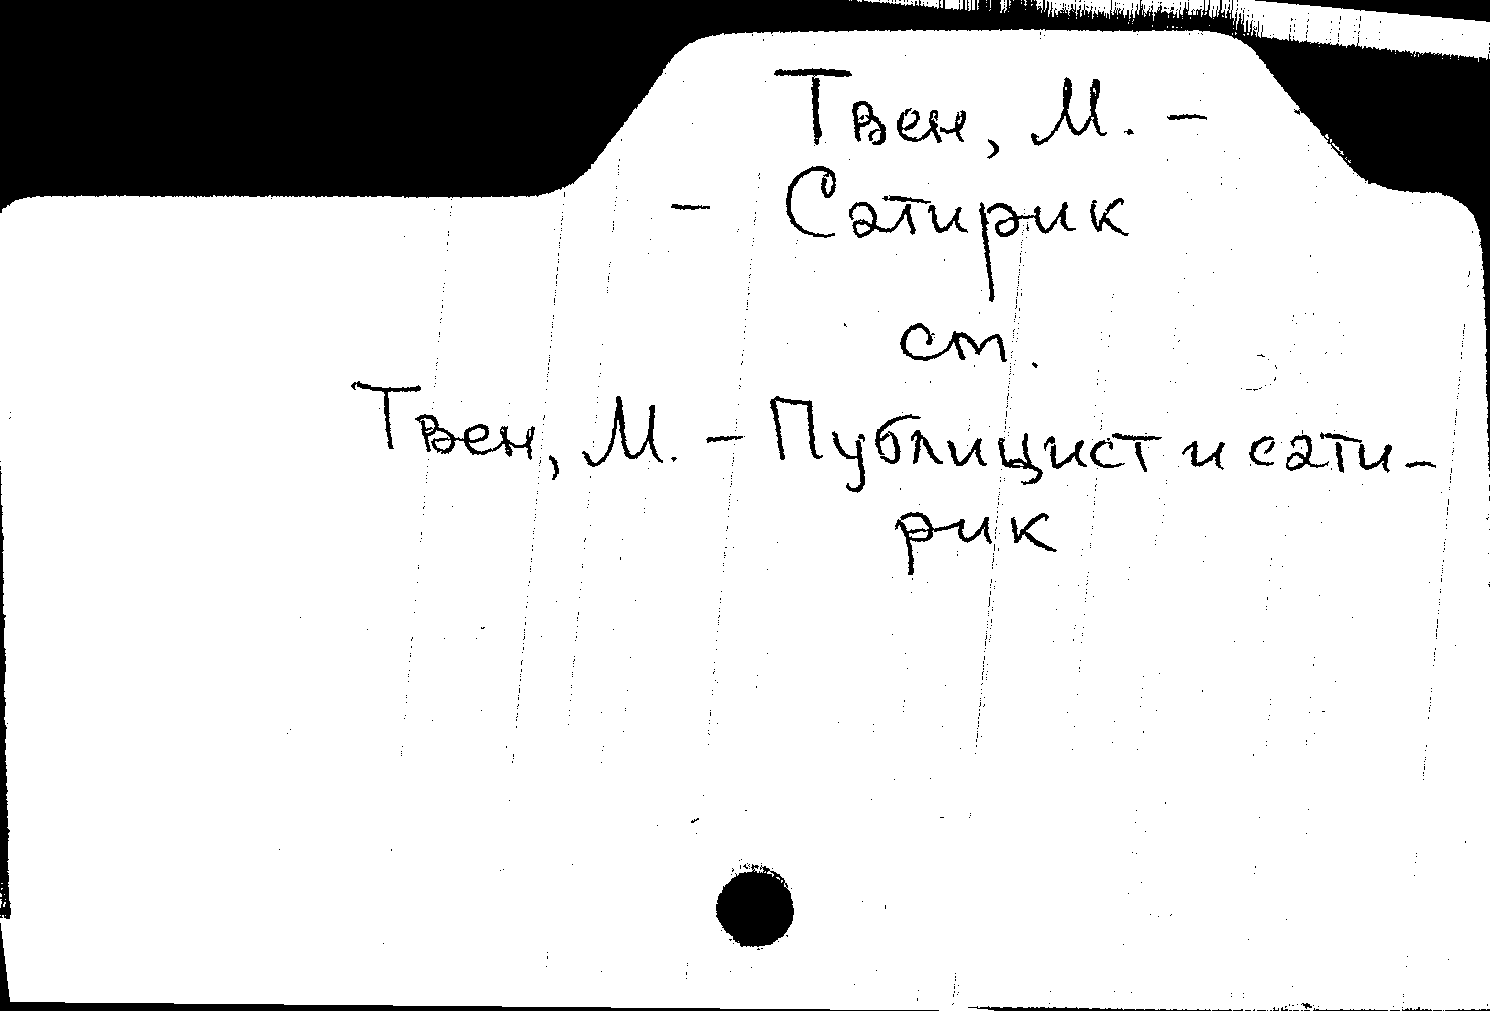 Твен, М. -
- Сатирик
см.
Твен, М. - Публицист и сати-
рик